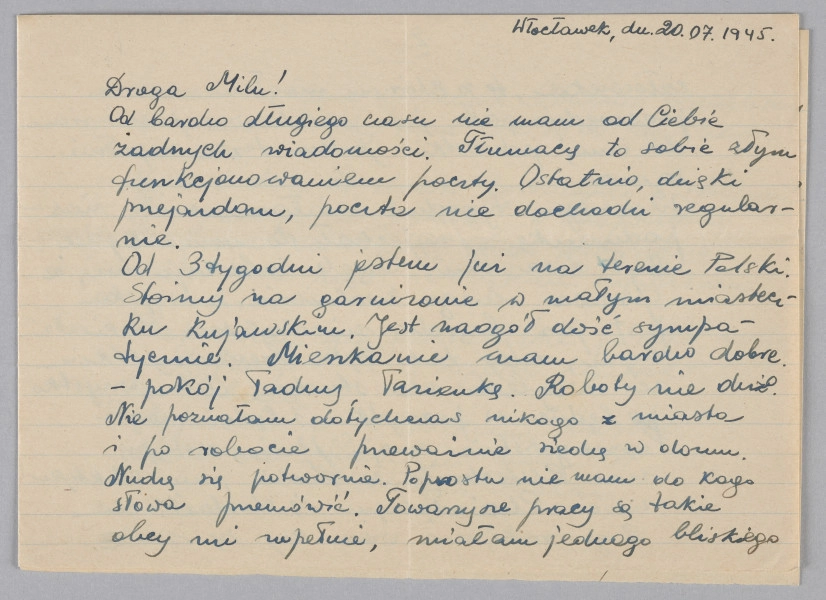 Włocławek, dn. 20.07.1945.
Droga Milu!
Od bardzo długiego czasu nie mam od Ciebie
żadnych wiadomości. Tłumaczę to sobie złym
funkcjonowaniem poczty. Ostatnio, dzięki
przejazdom, poczta nie dochodzi regular-
nie.
Od 3 tygodni jestem już na terenie Polski.
Stoimy na garnizonie w małym miastecz-
ku kujawskim. Jest naogół dość sympa-
tycznie. Mieszkanie mam bardzo dobre.
– pokój ładny, łazienkę. Roboty nie dużo.
Nie poznałam dotychczas nikogo z miasta
i po robocie przeważnie siedzę w domu.
Nudzę się potwornie. Poprostu nie mam do kogo
słowa przemówić. Towarzysze pracy są także
obcy mi zupełnie, miałam jednego bliskiego